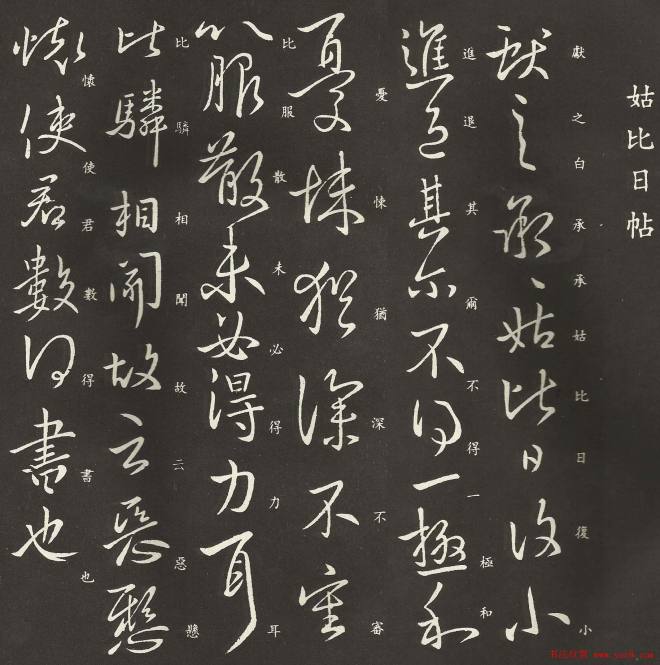 姑比日帖
獻之白承承姑比日復小
進退其爾不得一極和
憂悚猶深不審
比服散未必得力耳
比驎相聞故云惡懸
懷使君數得書也